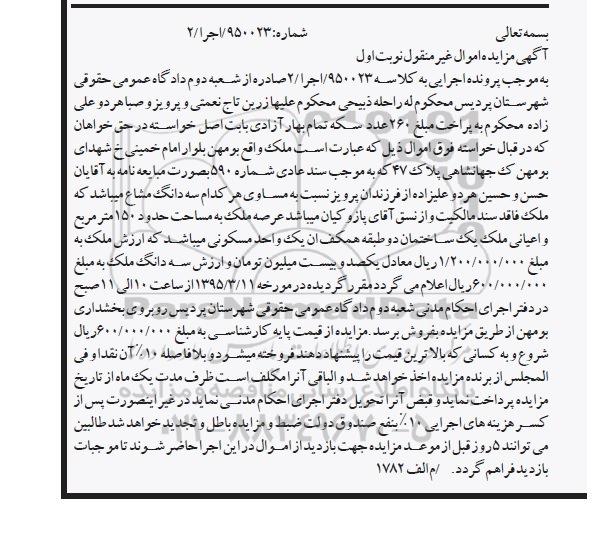 بسمه تعالی شماره: ۹۵۰۰۲۳/اجرا/۲
آگهی مزایده اموال غیر منقول نوبت اول
به موجب پرونده اجرایی به کلاسه ۹۵۰۰۲۳/اجرا/۲ صادره از شعبه دوم دادگاه عمومی حقوقی
شهرستان پردیس محکوم له راحله ذبیحی محکوم علیها زرین تاج نعمتی و پرویز و صبا هر دو علی
زاده محکوم به پراخت مبلغ ۲۶۰ عدد سکه تمام بهار آزادی بابت اصل خواسته در حق خواهان
که در قبال خواسته فوق اموال ذیل که عبارت است ملک واقع بومهن بلوار امام خمینی خ شهدای
بومهن ک جهانشاهی پلاک ۴۷ که به موجب سند عادی شماره ۵۹۰ بصورت مبایعه نامه به آقایان
حسن و حسین هر دو علیزاده از فرزندان پرویز نسبت به مساوی هر کدام سه دانگ مشاع میباشد که
ملک فاقد سند مالکیت و از نسق آقای یازوکیان میباشد عرصه ملک به مساحت حدود ۱۵۰ متر مربع
و اعیانی ملک یک ساختمان دو طبقه همکف ان یک واحد مسکونی میباشد که ارزش ملک به
مبلغ ۱/۲۰۰/۰۰۰/۰۰۰ ریال معادل یکصد و بیست میلیون تومان و ارزش سه دانگ ملک به مبلغ
۶۰۰/۰۰۰/۰۰۰ ریال اعلام می گردد مقرر گردیده در مورخه ۱۳۹۵/۳/۱۱ از ساعت ۱۰ الی ۱۱ صبح
در دفتر اجرای احکام مدنی شعبه دوم دادگاه عمومی حقوقی شهرستان پردیس روبروی بخشداری
بومهن از طریق مزایده بفروش برسد. مزایده از قیمت پایه کارشناسی به مبلغ ۶۰۰/۰۰۰/۰۰۰ ریال
شروع و به کسانی که بالاترین قیمت را پیشنهاد دهند فروخته میشود و بلافاصله ۱۰٪ آن نقدا و فی
المجلس از برنده مزایده اخذ خواهد شد و الباقی آنرا مکلف است ظرف مدت یک ماه از تاریخ
مزایده پرداخت نماید و قبض آنرا تحویل دفتر اجرای احکام مدنی نماید در غیر اینصورت پس از
کسر هزینه های اجرایی ۱۰٪ بنفع صندوق دولت ضبط و مزایده باطل و تجدید خواهد شد طالبین
می توانند ۵ روز قبل از موعد مزایده جهت بازدید از اموال در این اجرا حاضر شوند تا موجبات
بازدید فراهم گردد. /م الف ۱۷۸۲
ParsNamadData
پایگاه اطلاع رسانی مناقصه و مزایده
۰۲۱-۸۸۳۴۹۶۷۰-۵